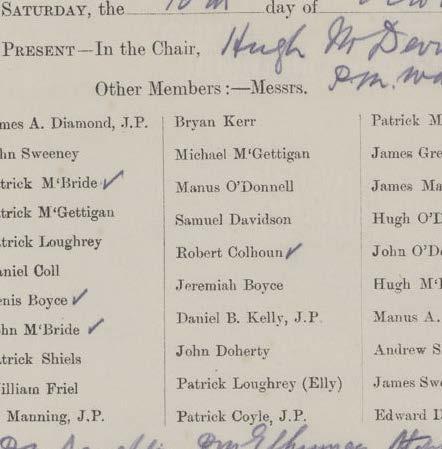 SATURDAY, the 10th day of
PRESENT—In the Chair, Hugh McDevi
Other Members :—Messrs. P.M. Wa
mes A. Diamond, J.P.
hn Sweeney
trick M‘Bride ✓
trick M‘Gettigan
trick Loughrey
aniel Coll
enis Boyce ✓
hn M‘Bride ✓
trick Shiels
illiam Friel
Manning, J.P.
Bryan Kerr
Michael M‘Gettigan
Manus O’Donnell
Samuel Davidson
Robert Colhoun ✓
Jeremiah Boyce
Daniel B. Kelly, J.P.
John Doherty
Patrick Loughrey (Elly)
Patrick Coyle, J.P.
Patrick M
James Gre
James Ma
Hugh O’D
John O’Do
Hugh M‘B
Manus A.
Andrew S
James Swe
Edward D